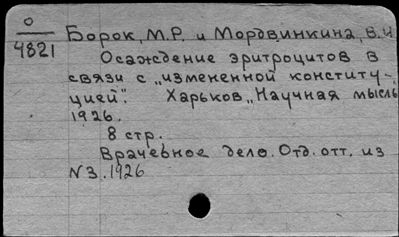 О
4821
Борок, М.Р. и Мордвинкина, В.И.
Осаждение эритроцитов в
связи с „измененной конститу-
цией". Харьков „Научная мысль
1926.
8 стр.
Врачебное дело. Отд. отт. из
N3. 1926